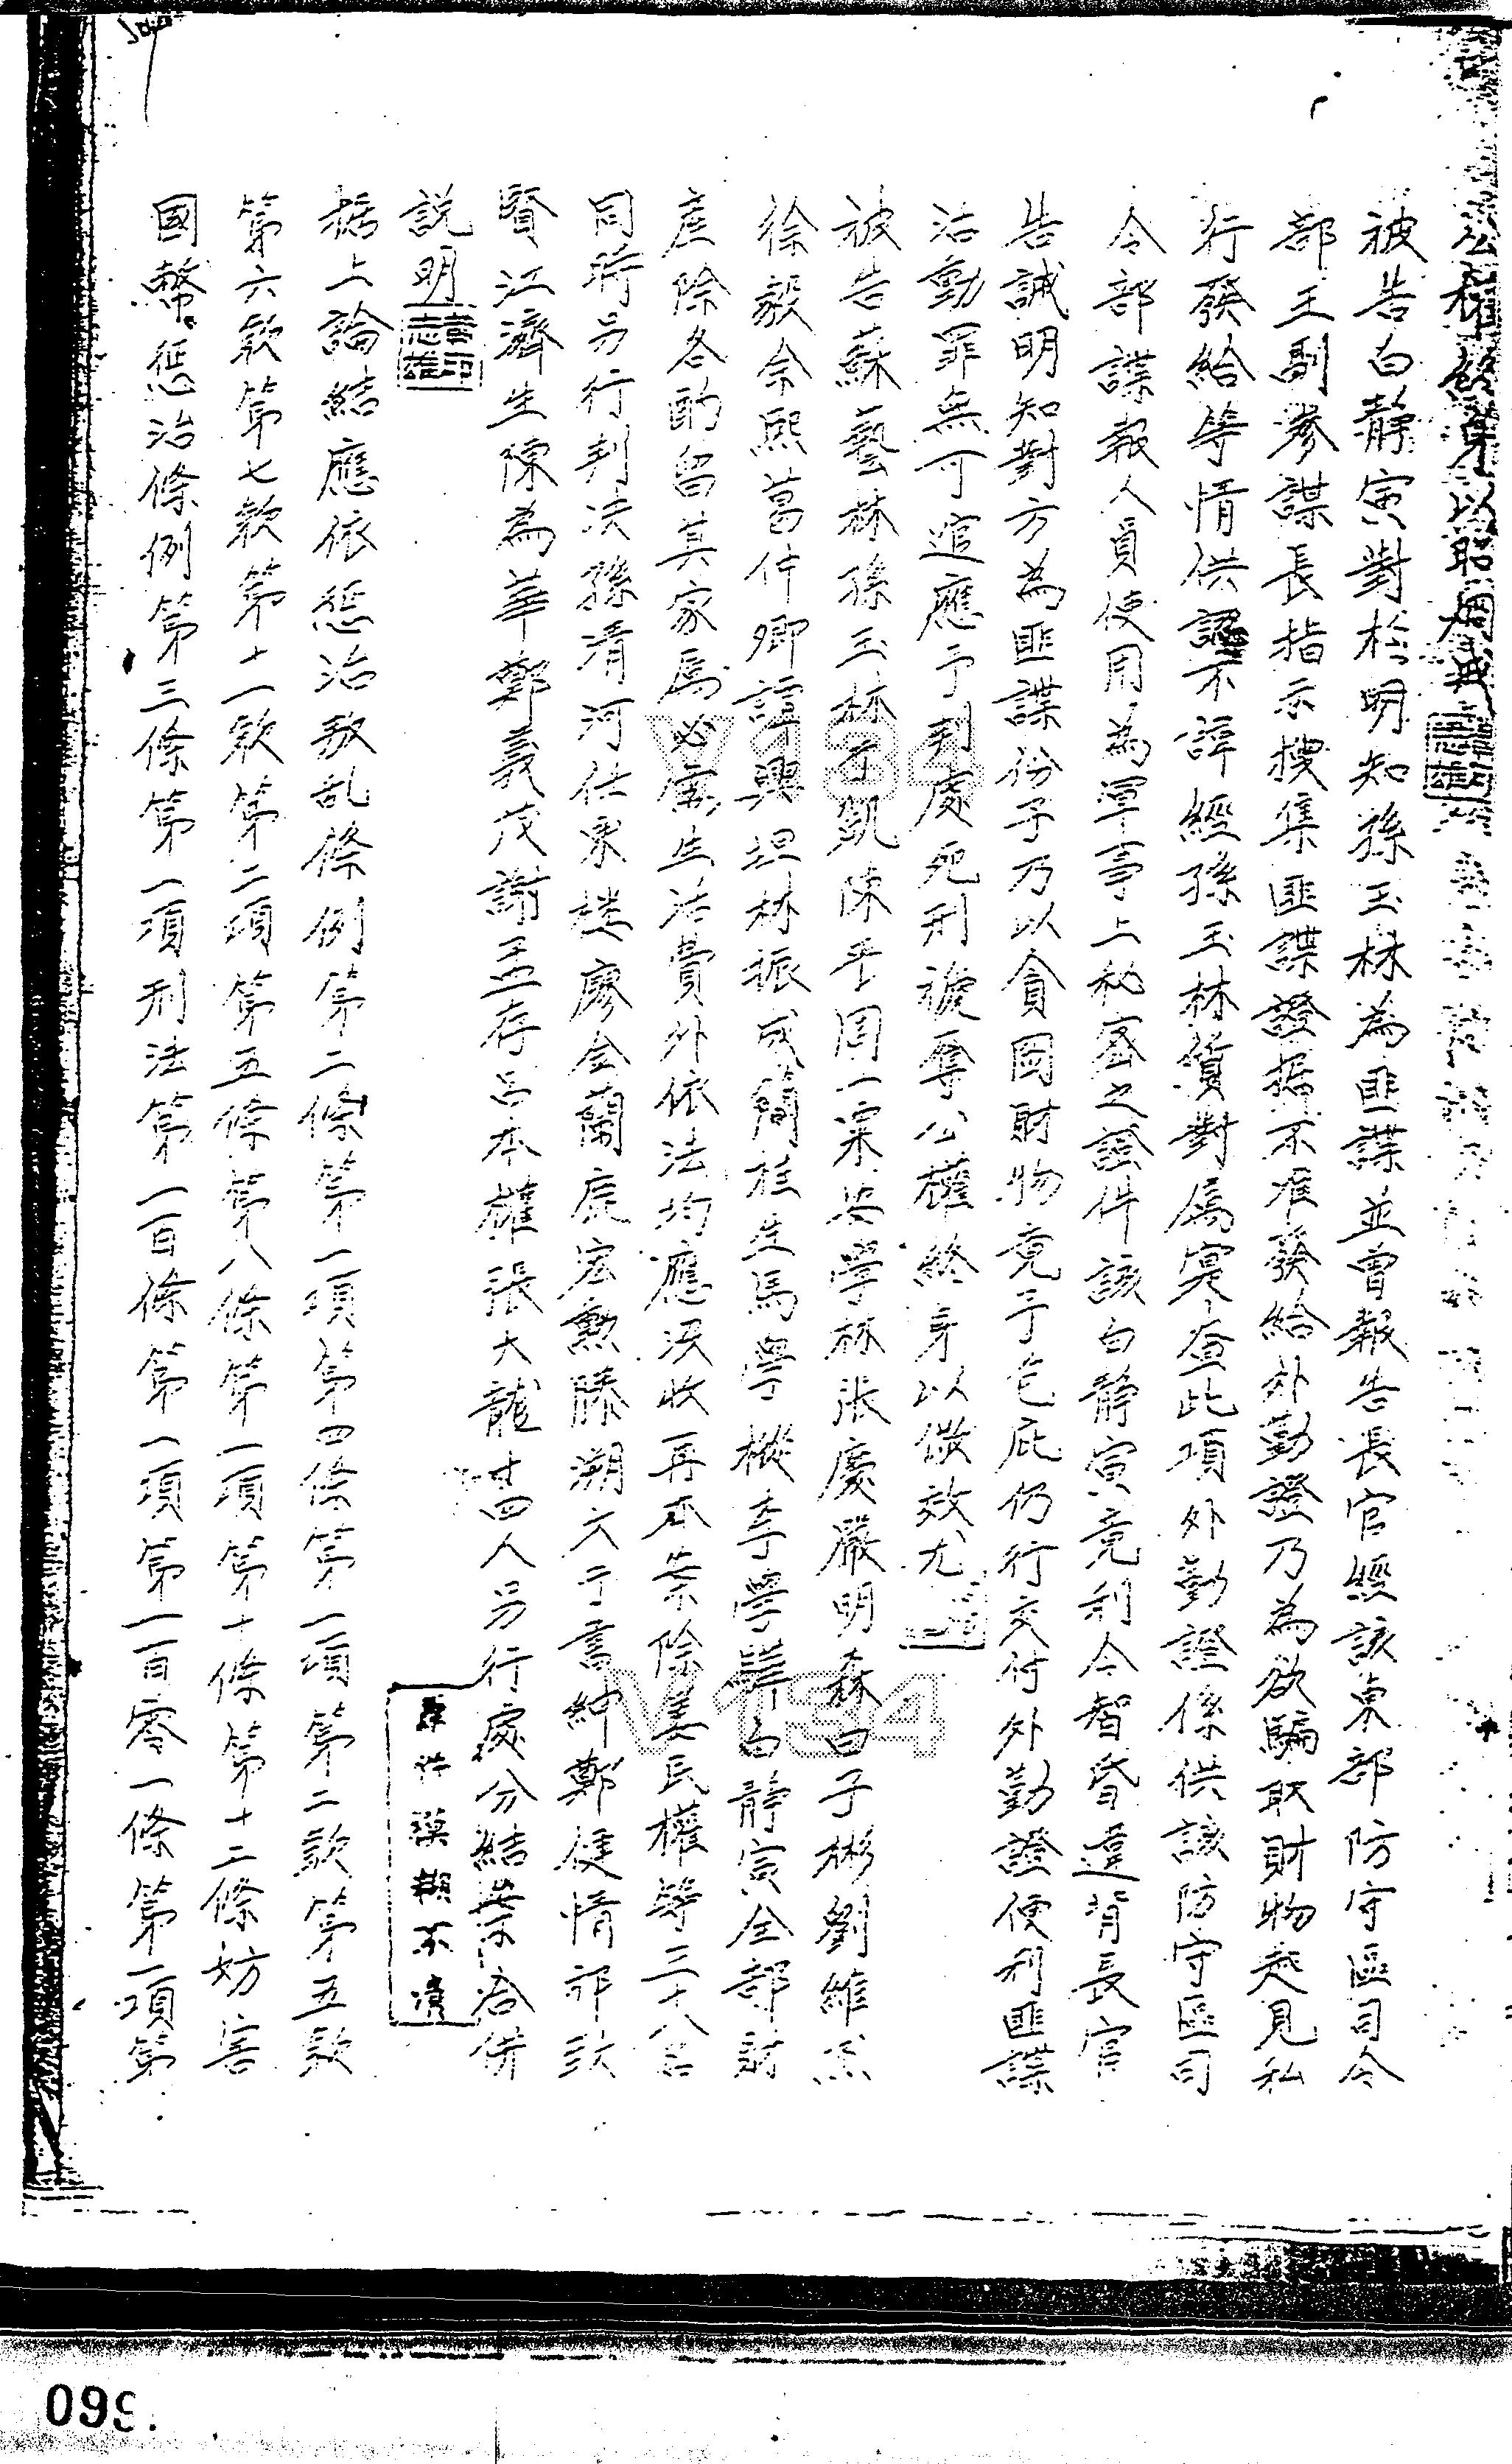 公權終身以昭烱戒
被告白靜寅對於明知孫玉林為匪諜並曾報告長官經該東部防守區司令
部王副參謀長指示搜集匪諜證據不准發給外勤證乃為欲騙取財物起見私
行發給等情供認不諱經孫玉林質對屬實查此項外勤證係供該防守區司
令部諜報人員使用為軍事上秘密之證件該白靜寅竟利令智昏違背長官
告誡明知對方為匪諜份子乃以貪圖財物竟予包庇仍行交付外勤證便利匪諜
活動罪無可逭應予判處死刑褫奪公權終身以儆效尤
被告蘇藝林孫玉林于凱陳平周一粟吳學林張慶嚴明森田子彬劉維杰
徐毅余熙葛仲卿諱興坦林振成簡桂生馬學樅李學驊白靜寅全部財
產除各酌留其家屬必需生活費外依法均應沒收再本案除姜民權等三十八名
同時另行判決孫清河仕棠樓廖金蘭辰宏勳滕溯文于書紳鄭健情祁玖
賢江濟生陳為華鄭義茂謝孟存呂本雄張大龍廿四人另行處分結案合併
說明
據上論結應依懲治叛乱條例第二條第一項第四條第一項第二款第五款
第六款第七款第十一款第二項第五條第八條第一項第十條第十二條妨害
國幣懲治條例第三條第一項刑法第一百條第一項第一百零一條第一項第
本件模糊不清
V134
V134
099